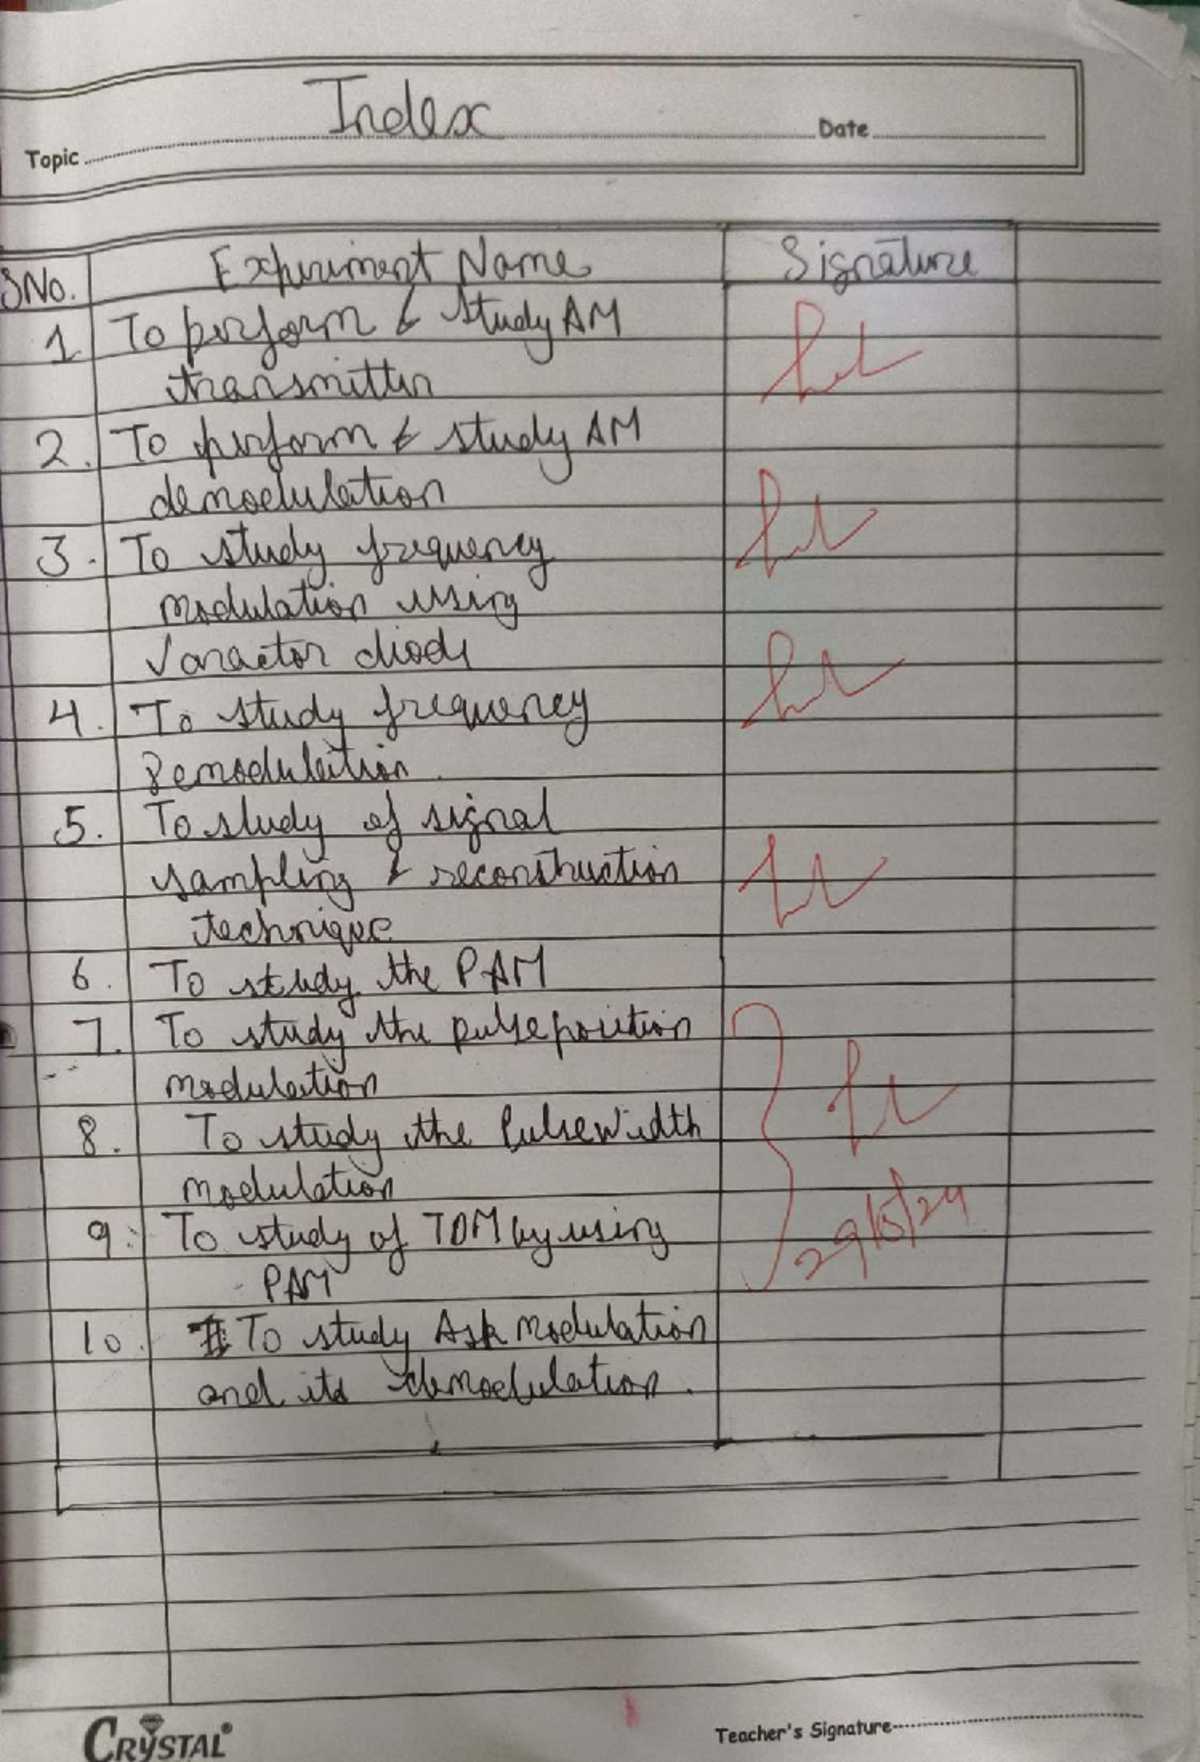 Index
Topic
Date
SNo. Experiment Name Signature
1 To perform & study AM
transmitter
2. To perform & study AM
demodulation
3. To study frequency
modulation using
Varactor diode
4. To study frequency
Demodulation
5. To study of signal
sampling & reconstruction
technique
6. To study the PAM
7. To study the pulse position
modulation
8. To study the Pulse Width
modulation
9. To study of TDM by using
PAM
29/5/24
10. To study Ask modulation
and its demodulation.
CRYSTAL®
Teacher's Signature